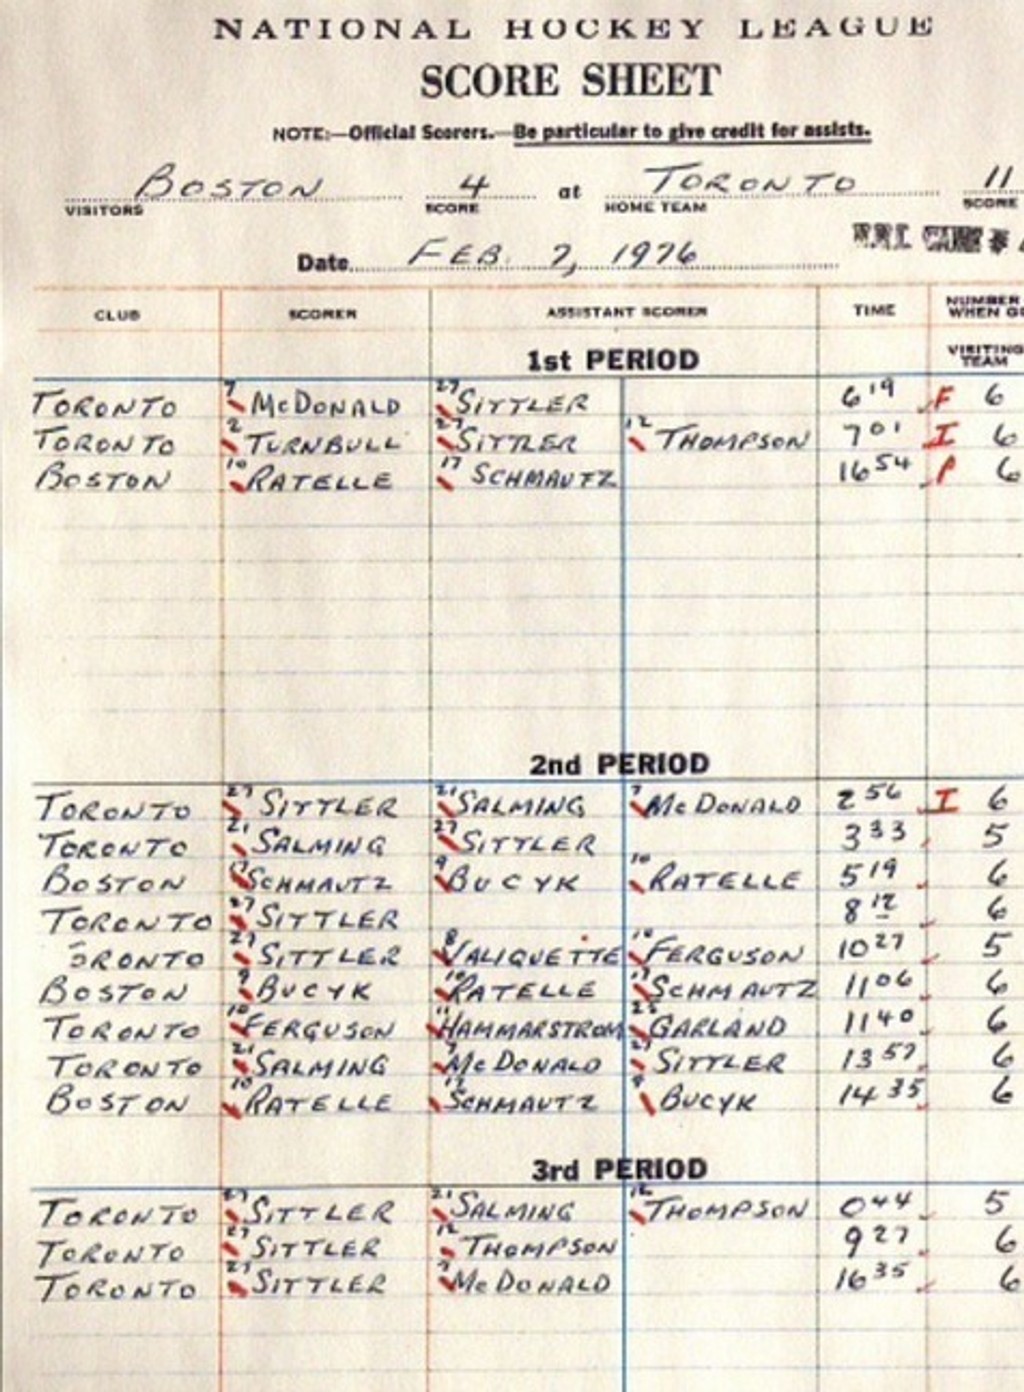 NATIONAL HOCKEY LEAGUE
SCORE SHEET
NOTE:—Official Scorers.—Be particular to give credit for assists.
BOSTON 4 at TORONTO 11
VISITORS SCORE HOME TEAM SCORE
Date FEB. 7, 1976
CLUB SCORER ASSISTANT SCORER TIME NUMBER WHEN GO
VISITING TEAM
1st PERIOD
TORONTO 7 McDONALD 27 SITTLER 6 19 F 6
TORONTO 2 TURNBULL 27 SITTLER 12 THOMPSON 7 01 I 6
BOSTON 10 RATELLE 17 SCHMAUTZ 16 54 P 6
2nd PERIOD
TORONTO 27 SITTLER 21 SALMING 7 McDONALD 2 56 I 6
TORONTO 21 SALMING 27 SITTLER 3 33 5
BOSTON SCHMAUTZ 9 BUCYK 10 RATELLE 5 19 6
TORONTO 27 SITTLER 8 12 6
TORONTO 27 SITTLER 8 VALIQUETTE 10 FERGUSON 10 27 5
BOSTON 9 BUCYK 10 RATELLE 17 SCHMAUTZ 11 06 6
TORONTO 10 FERGUSON 11 HAMMARSTROM 25 GARLAND 11 40 6
TORONTO 21 SALMING 7 McDONALD 27 SITTLER 13 57 6
BOSTON 10 RATELLE 17 SCHMAUTZ 9 BUCYK 14 35 6
3rd PERIOD
TORONTO 27 SITTLER 21 SALMING 12 THOMPSON 0 44 5
TORONTO 27 SITTLER 12 THOMPSON 9 27 6
TORONTO 27 SITTLER 7 McDONALD 16 35 6